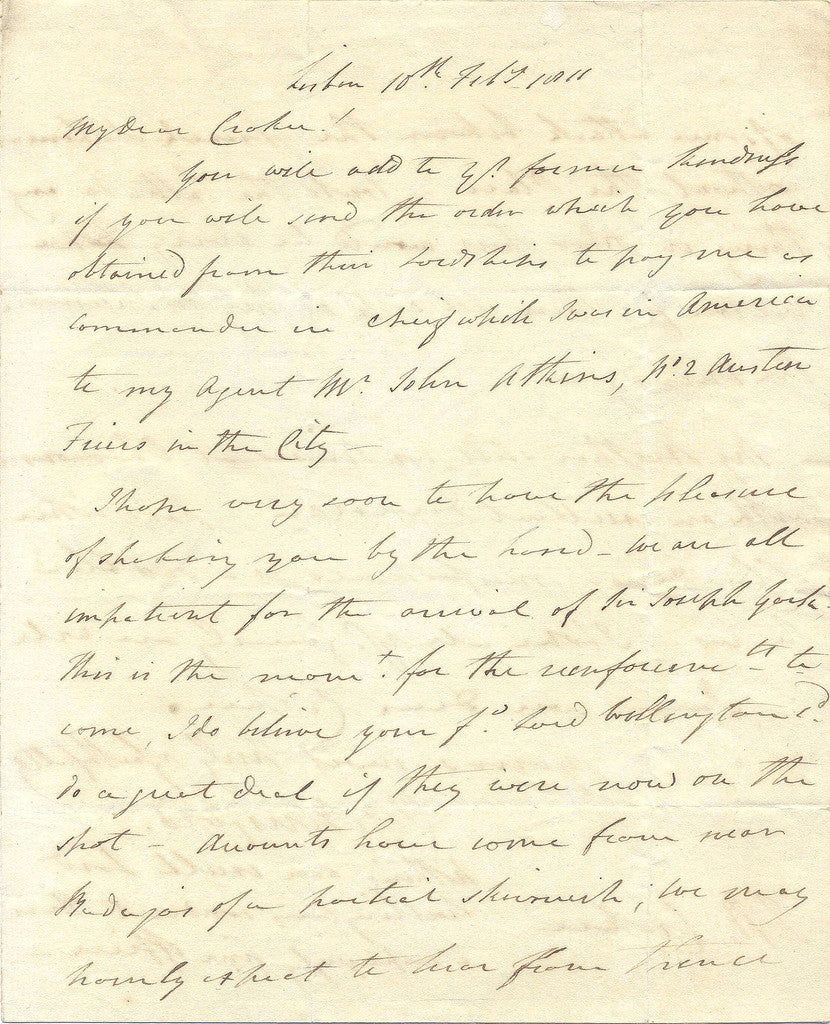 Lisbon 10th. Feby 1811
My Dear Croker!
You will add to yr. former kindness
if you will send the order which you have
obtained from their Lordships to pay me as
commander in cheif while I was in America
to my Agent Mr. John Atkins, No. 2 Austin
Friers in the City —
I hope very soon to have the pleasure
of shaking you by the hand — we are all
impatient for the arrival of Sir Joseph Yorke,
this is the momt. for the reinforcemts to
come, I do believe your fd. Lord Wellington cd.
do a great deal if they were now on the
spot — Accounts have come from near
Badajos of a partial skirmish; we may
hourly expect to hear from thence